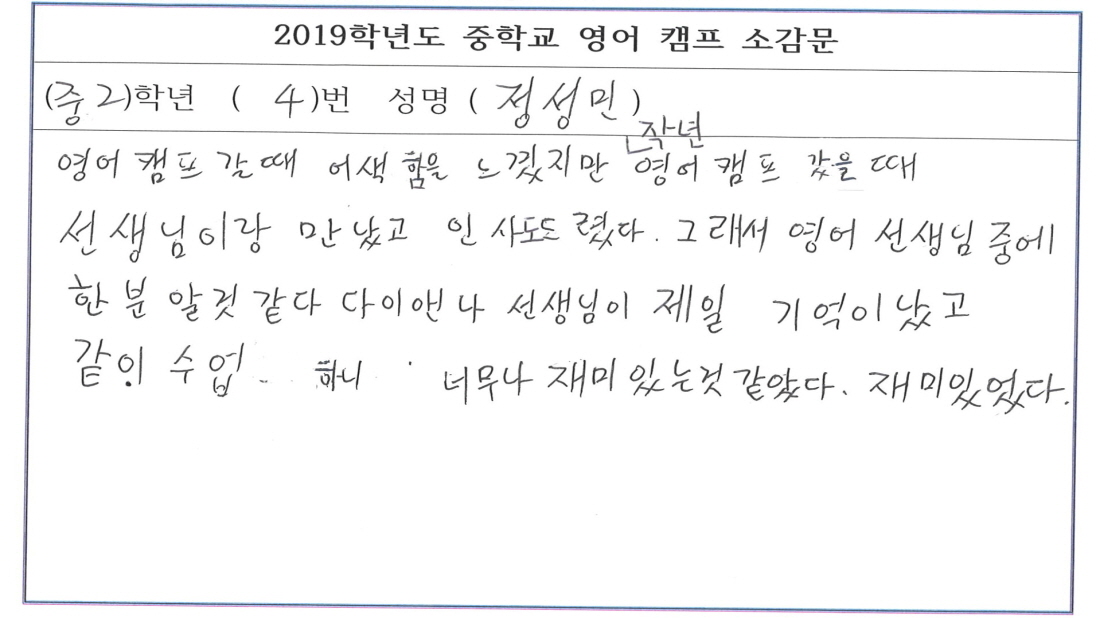 2019학년도 중학교 영어 캠프 소감문
(중2)학년 ( 4 )번 성명 ( 정성민 )
작년
영어 캠프 갈때 어색함을 느꼈지만 영어 캠프 갔을 때
선생님이랑 만났고 인사도드렸다. 그래서 영어 선생님 중에
한 분 알것 같다 다이앤나 선생님이 제일 기억이났고
같이 수업 하니 너무나 재미있는것 같았다. 재미있었다.